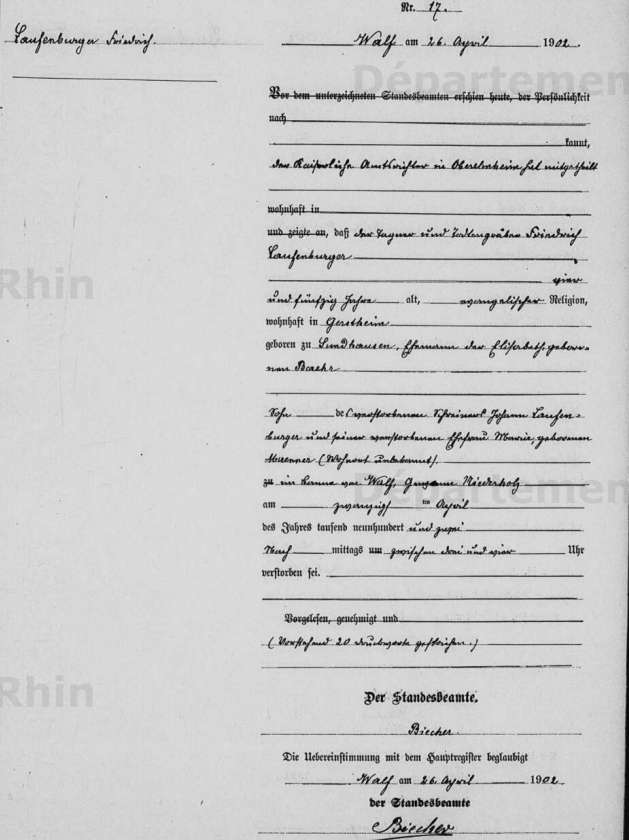 Nr. 17.
Laufenburger Friedrich.
Walf am 26. April 1902.
Vor dem unterzeichneten Standesbeamten erschien heute, der Persönlichkeit
nach
kannt,
der Kaiserliche Amtsrichter in Oberehnheim hat mitgetheilt
wohnhaft in
und zeigte an, daß der Tagner und Todtengräber Friedrich
Laufenburger
vier
und fünfzig Jahre alt, evangelischer Religion,
wohnhaft in Gerstheim
geboren zu Sundhausen, Ehemann der Elisabeth, gebore-
nen Baehr
Sohn des verstorbenen Schreiners Johann Laufen-
burger und seiner verstorbenen Ehefrau Maria, geborenen
(Wohnort unbekannt).
zu im Banne von Walf, Niederholz
am zwanzigsten April
des Jahres tausend neunhundert und zwei
Nach mittags um zwischen drei und vier Uhr
verstorben sei.
Vorgelesen, genehmigt und
(Vorstehend 20 Druckworte gestrichen.)
Der Standesbeamte.
Biecher.
Die Uebereinstimmung mit dem Hauptregister beglaubigt
Walf am 26. April 1902.
der Standesbeamte
Biecher
Départemen
Rhin
Départemen
Rhin